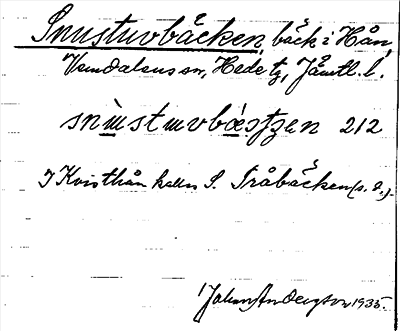 Snustuvbäcken, bäck i Hån,
Vemdalens sn, Hede tg, Jämtl. l.
snùstuvbɛ́ςtʒen 212
I Kvisthån kallas S. Tråbäcken (s. d.).
Johan Andersson 1935.